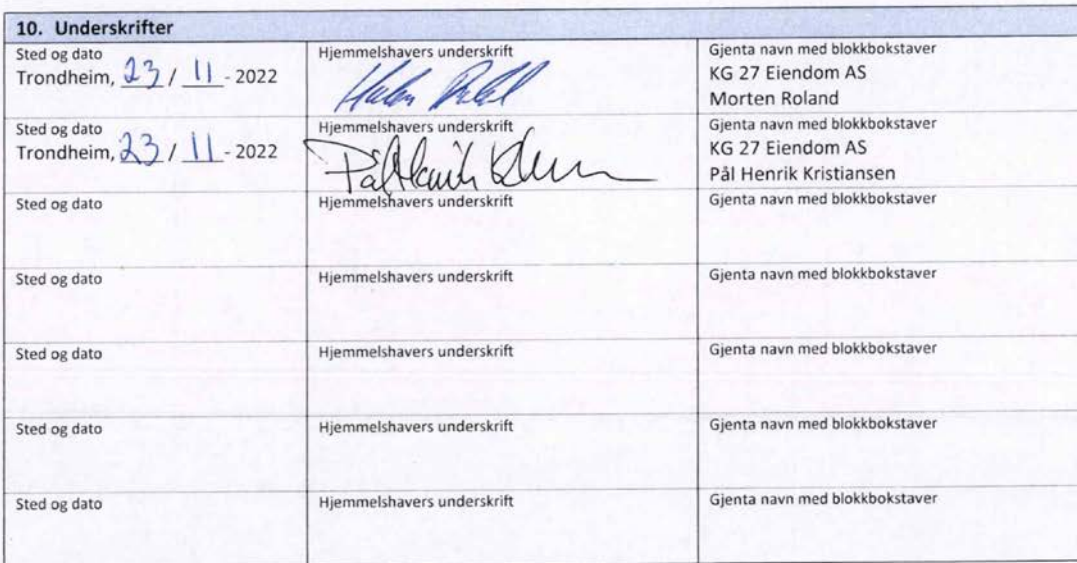 10. Underskrifter
Sted og dato
Trondheim, 23 / 11 - 2022
Hjemmelshavers underskrift
Gjenta navn med blokkbokstaver
KG 27 Eiendom AS
Morten Roland
Sted og dato
Trondheim, 23 / 11 - 2022
Hjemmelshavers underskrift
Pål Henrik
Gjenta navn med blokkbokstaver
KG 27 Eiendom AS
Pål Henrik Kristiansen
Sted og dato
Hjemmelshavers underskrift
Gjenta navn med blokkbokstaver
Sted og dato
Hjemmelshavers underskrift
Gjenta navn med blokkbokstaver
Sted og dato
Hjemmelshavers underskrift
Gjenta navn med blokkbokstaver
Sted og dato
Hjemmelshavers underskrift
Gjenta navn med blokkbokstaver
Sted og dato
Hjemmelshavers underskrift
Gjenta navn med blokkbokstaver